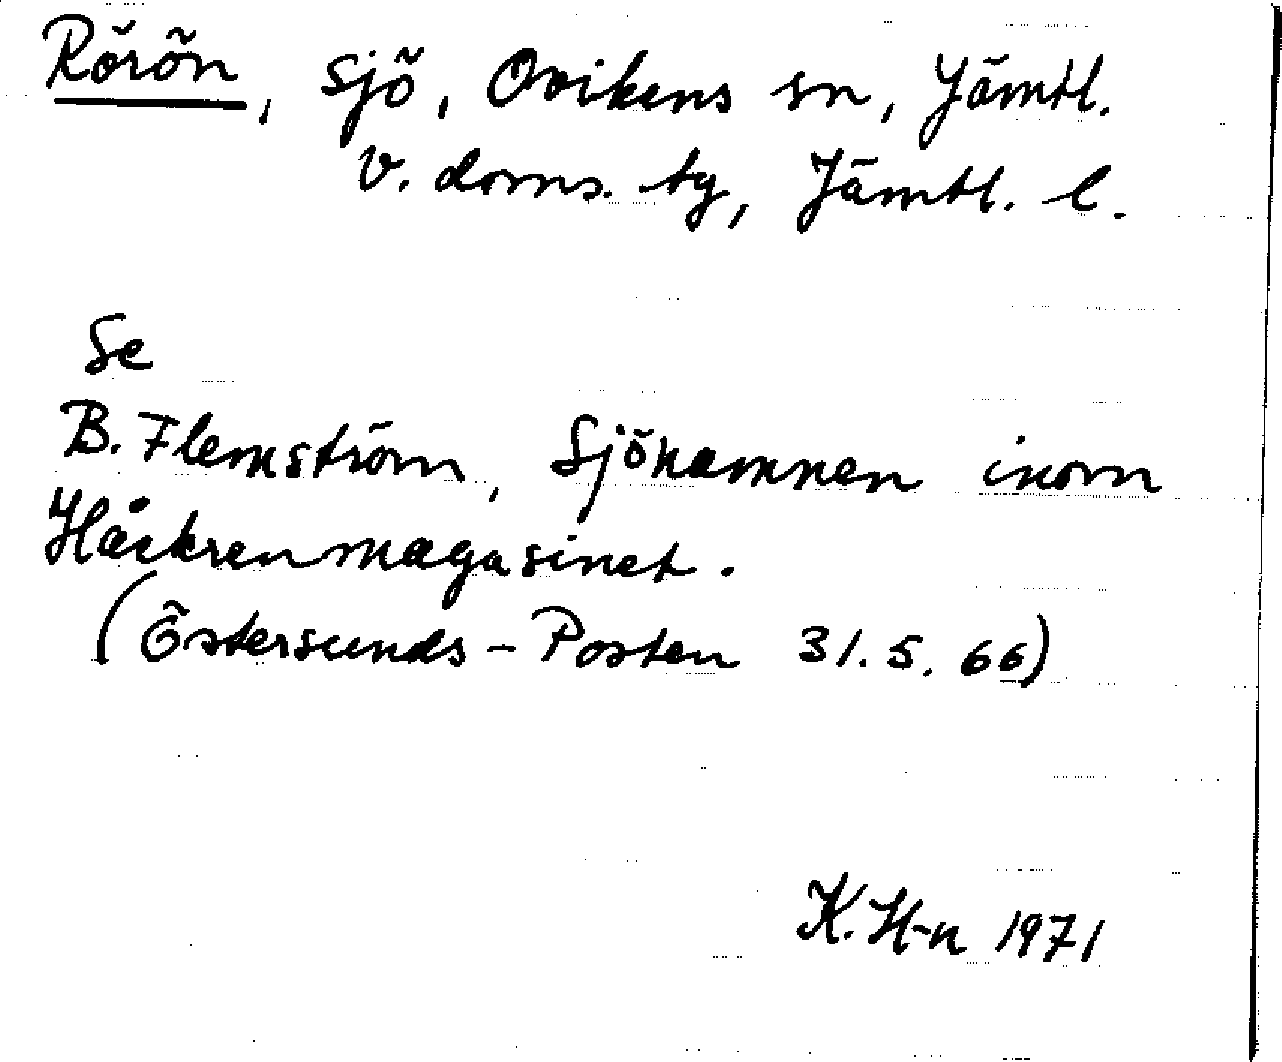 Rörön, sjö, Ovikens sn, Jämtl.
v. doms. tg, Jämtl. l.
Se
B. Flemström, Sjönamnen inom
Håckrenmagasinet.
(Östersunds-Posten 31.5.66)
K. H-n 1971